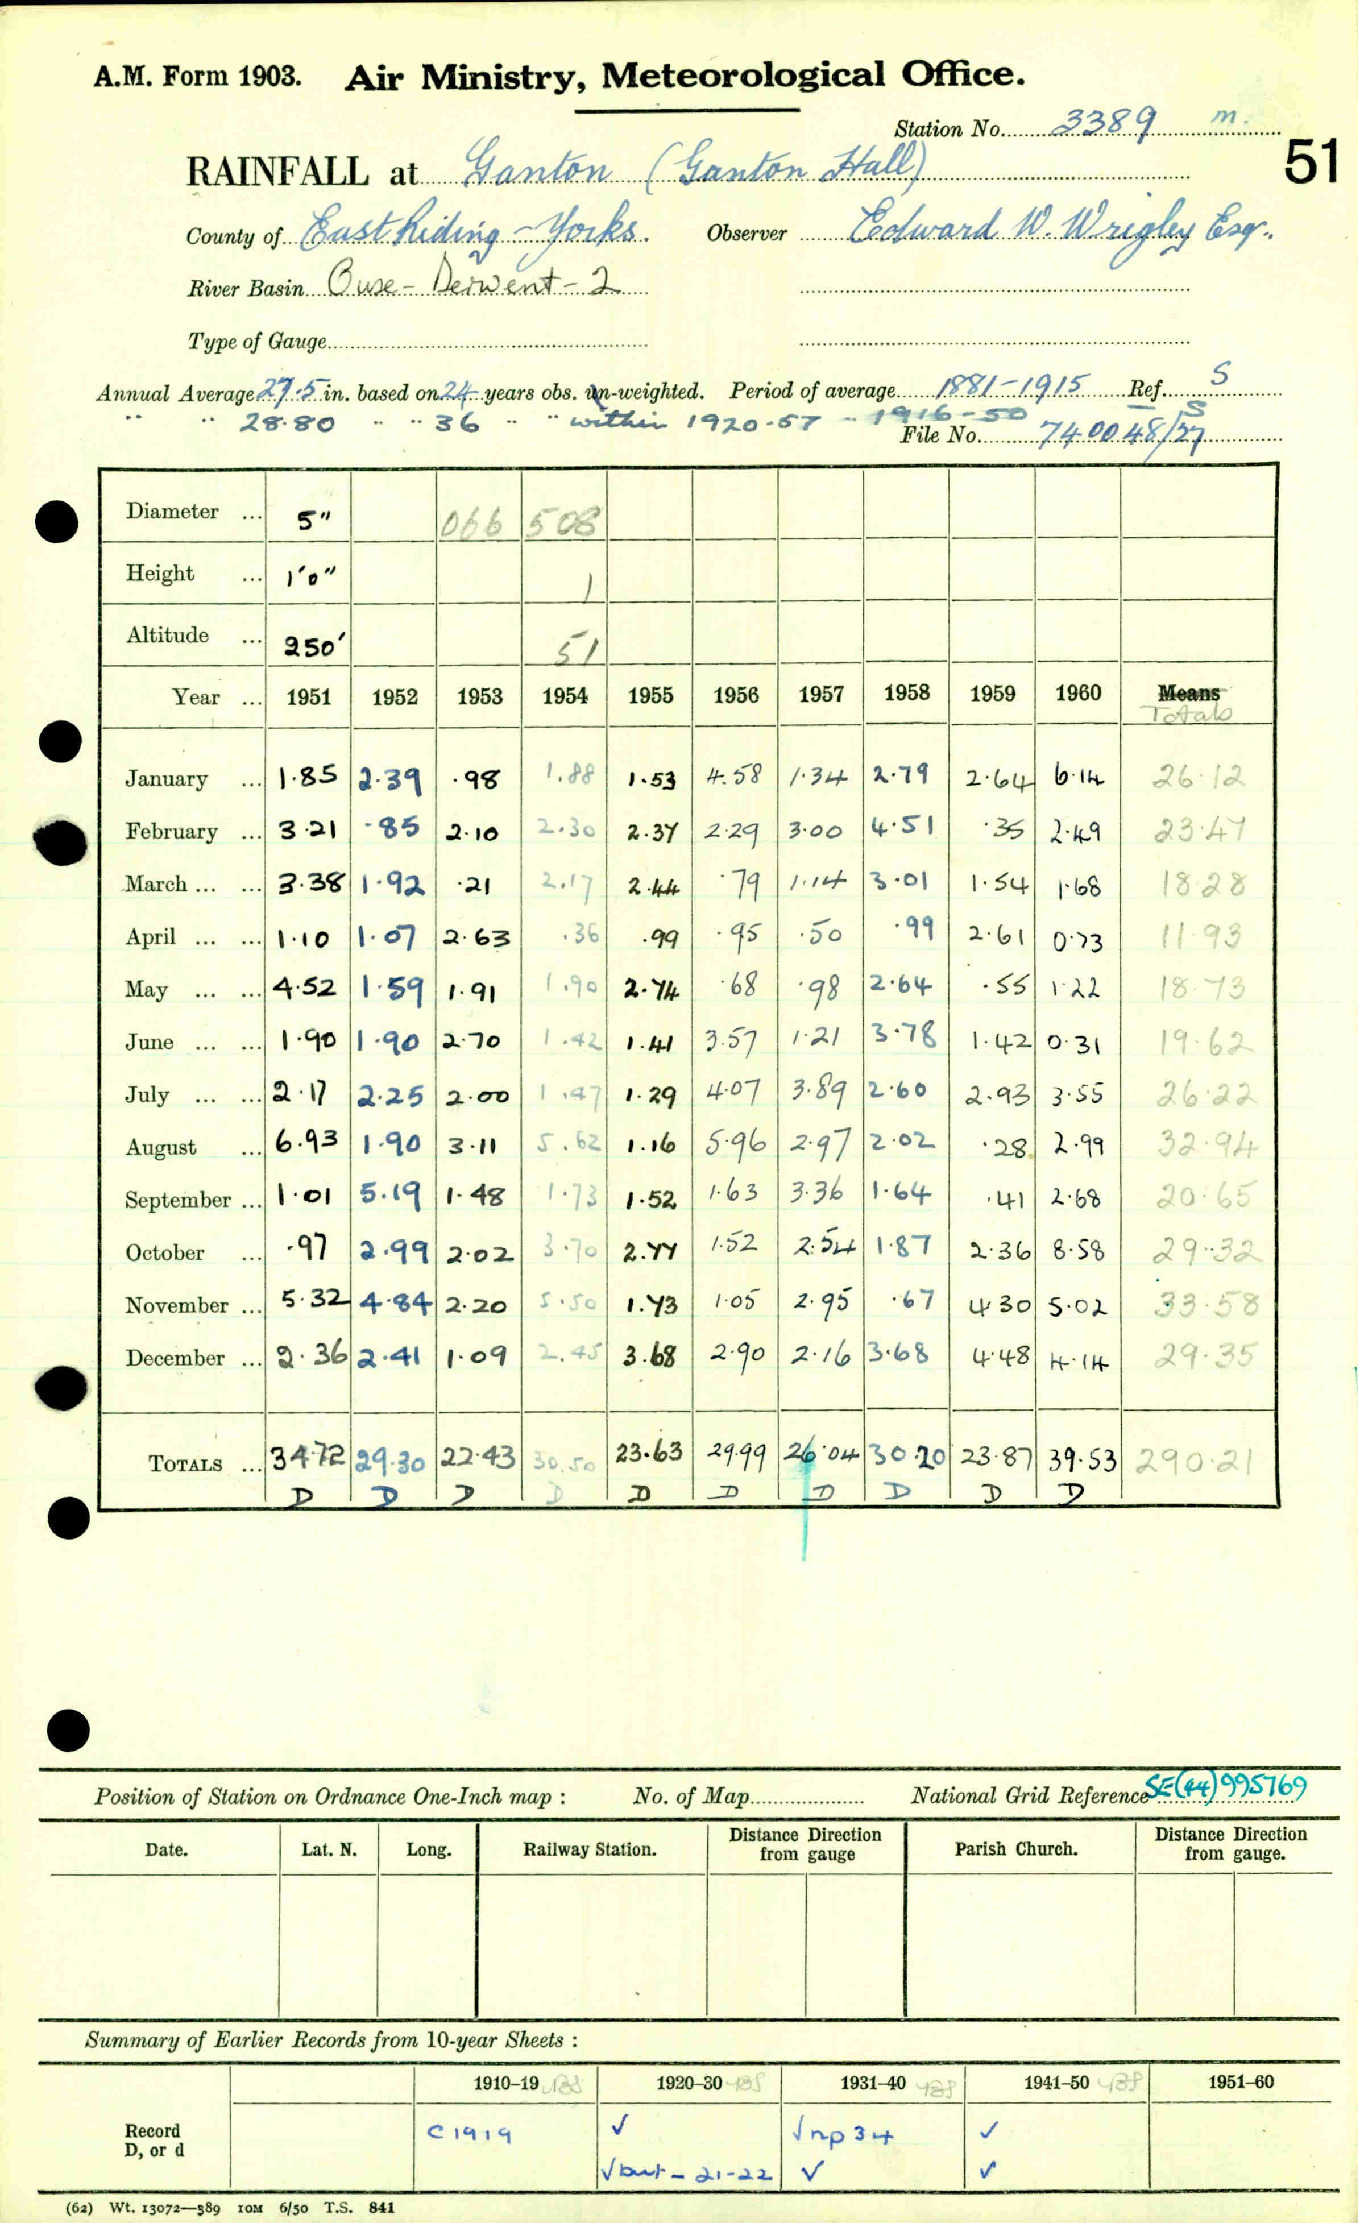 A.M. Form 1903. Air Ministry, Meteorological Office.
Station No. 3389 m.
51
RAINFALL at Ganton (Ganton Hall)
County of East Riding - Yorks. Observer Edward W. Wrigley Esq.
River Basin Ouse - Derwent - 2
Type of Gauge
Annual Average 27.5 in. based on 24 years obs. un-weighted. Period of average 1881-1915 Ref. S
" " 28.80 " " 36 " " within 1920-57 " 1916-50 S
File No. 740048/27
Diameter ... 5" 066 508
Height ... 1'0" 1
Altitude ... 250' 51
Year ... 1951 1952 1953 1954 1955 1956 1957 1958 1959 1960 Means
Totals
January ... 1.85 2.39 .98 1.88 1.53 4.58 1.34 2.79 2.64 6.14 26.12
February ... 3.21 .85 2.10 2.30 2.37 2.29 3.00 4.51 .35 2.49 23.47
March ... ... 3.38 1.92 .21 2.17 2.44 .79 1.14 3.01 1.54 1.68 18.28
April ... ... 1.10 1.07 2.63 .36 .99 .95 .50 .99 2.61 0.73 11.93
May ... ... 4.52 1.59 1.91 1.90 2.74 .68 .98 2.64 .55 1.22 18.73
June ... ... 1.90 1.90 2.70 1.42 1.41 3.57 1.21 3.78 1.42 0.31 19.62
July ... ... 2.17 2.25 2.00 1.47 1.29 4.07 3.89 2.60 2.93 3.55 26.22
August ... 6.93 1.90 3.11 5.62 1.16 5.96 2.97 2.02 .28 2.99 32.94
September ... 1.01 5.19 1.48 1.73 1.52 1.63 3.36 1.64 .41 2.68 20.65
October ... .97 2.99 2.02 3.70 2.77 1.52 2.54 1.87 2.36 8.58 29.32
November ... 5.32 4.84 2.20 5.50 1.73 1.05 2.95 .67 4.30 5.02 33.58
December ... 2.36 2.41 1.09 2.45 3.68 2.90 2.16 3.68 4.48 4.14 29.35
TOTALS ... 34.72 29.30 22.43 30.50 23.63 29.99 26.04 30.20 23.87 39.53 290.21
D D D D D D D D D D
Position of Station on Ordnance One-Inch map : No. of Map National Grid Reference SE(44)995769
Date. Lat. N. Long. Railway Station. Distance Direction from gauge Parish Church. Distance Direction from gauge.
Summary of Earlier Records from 10-year Sheets :
1910-19 1920-30 1931-40 1941-50 1951-60
Record C1919 ✓ ✓ np 34 ✓
D, or d ✓ but - 21-22 ✓ ✓
(62) Wt. 13072—389 10M 6/50 T.S. 841